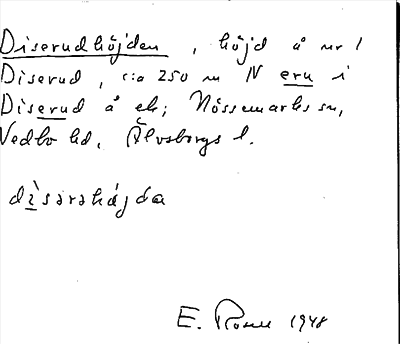 Diserudhöjden, höjd å nr 1
Diserud, c:a 250 m N eru i
Diserud å ek; Nössemarks sn,
Vedbo hd, Älvsborgs l.
dìsərəhǻjda
E. 1948